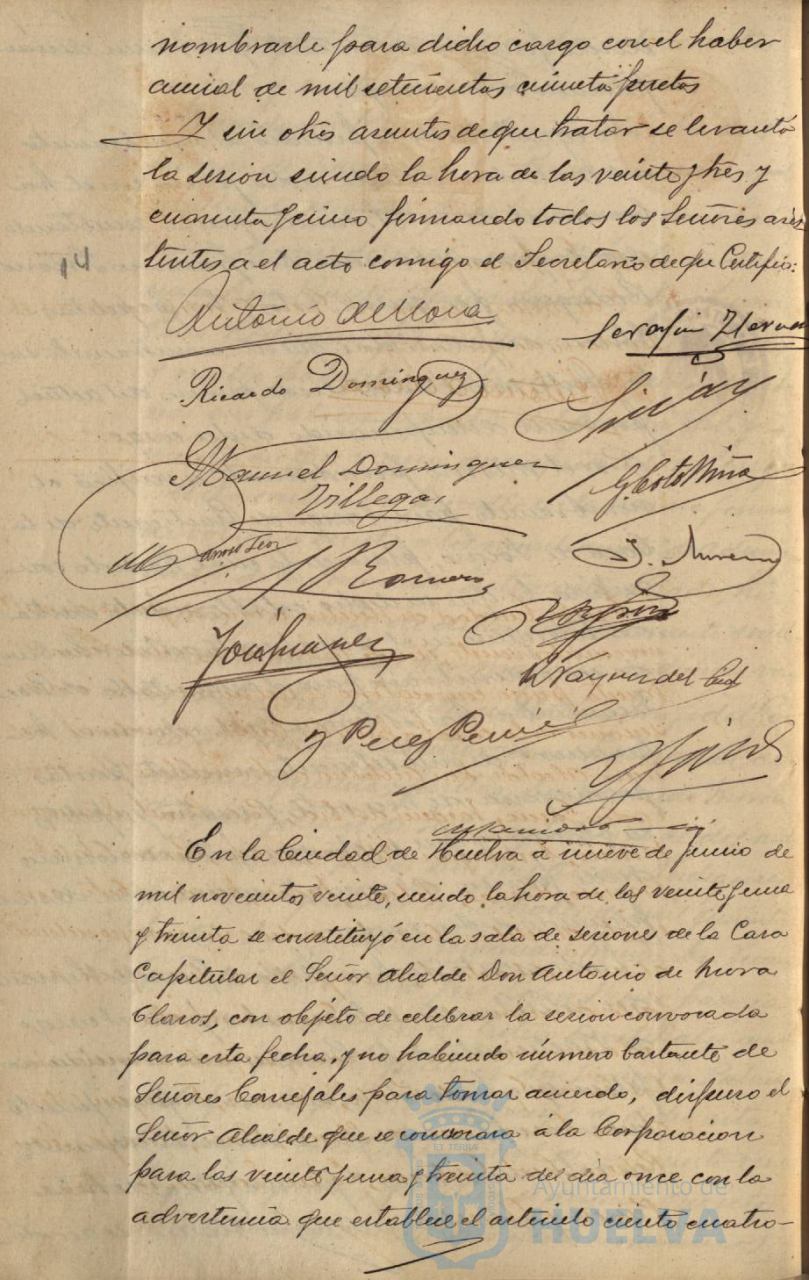 nombrarle para dicho cargo con el haber
anual de mil setecientas cincuenta pesetas
Y sin otros asuntos de que tratar se levantó
la sesion siendo la hora de las veinte y tres y
cuarenta y cinco firmando todos los Señores asis
tentes a el acto comigo el Secretario de que Certifico:
14
Antonio de Mora
Serafin
Ricardo Dominguez
Manuel Dominguez
Villegas
G. Coto Miña
J. Moreno
Romero
José Juanez
Vazquez del
y Perez
En la Ciudad de Huelva á nueve de junio de
mil novecientos veinte, siendo la hora de las veinte y una
y treinta se constituyó en la sala de sesiones de la Casa
Capitular el Señor Alcalde Don Antonio de Mora
Claros, con objeto de celebrar la sesion convocada
para esta fecha, y no habiendo número bastante de
Señores Concejales para tomar acuerdo, dispuso el
Señor Alcalde que se convocara á la Corporacion
para las veinte y una y treinta del dia once con la
advertencia que establece el articulo ciento cuatro-
Ayuntamiento de
HUELVA